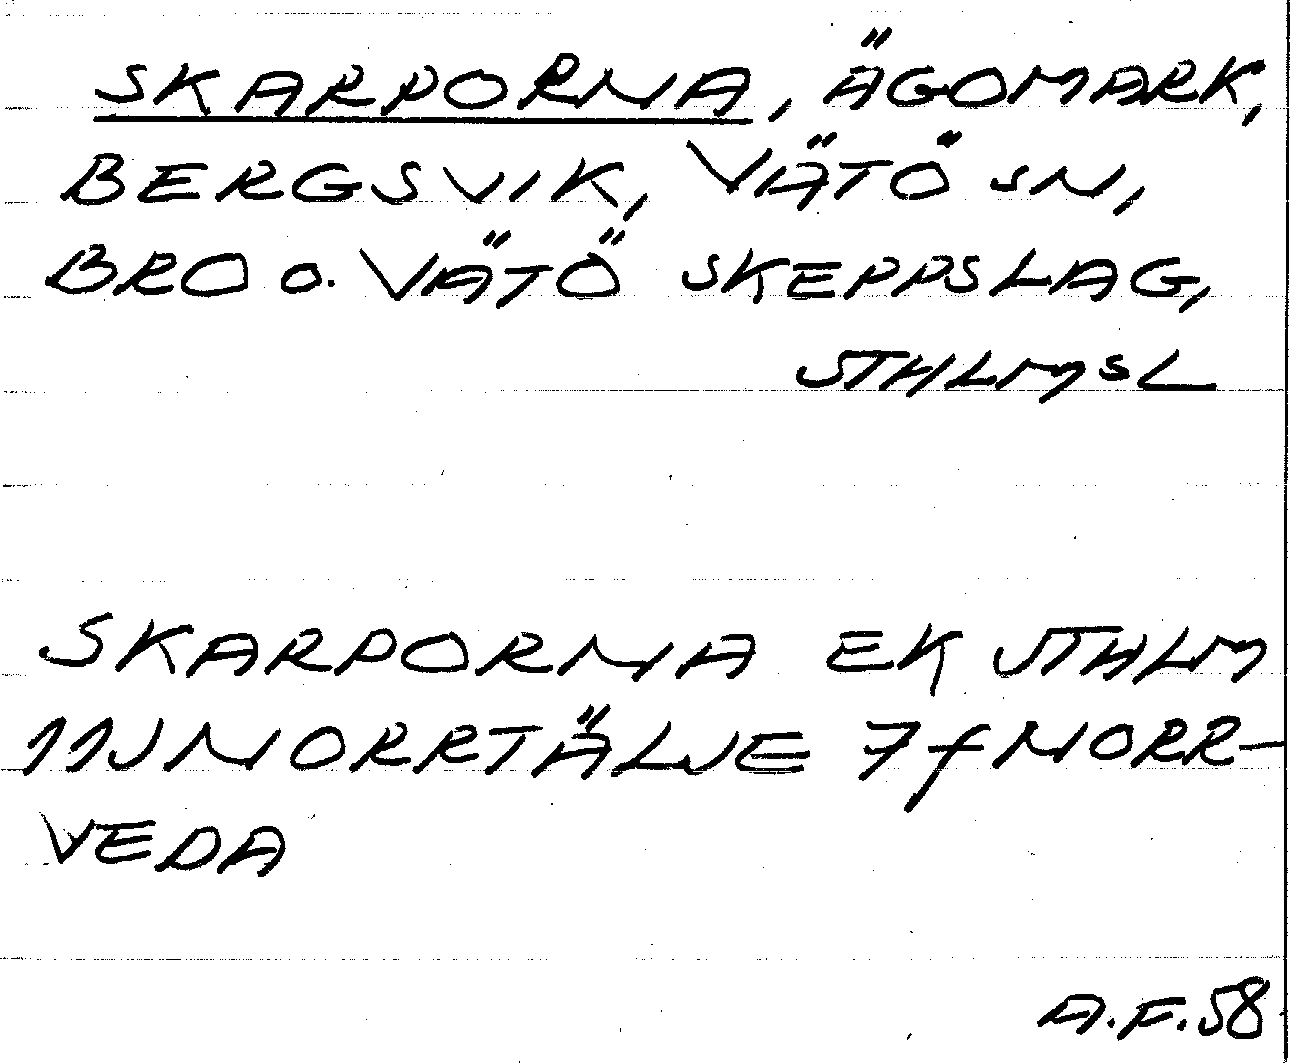 SKARPORNA, ÄGOMARK,
BERGSVIK, VÄTÖ SN,
BRO o. VÄTÖ SKEPPSLAG,
STHLMSL
SKARPORNA EK STHLM
11J NORRTÄLJE 7f NORR-
VEDA
A.F.58